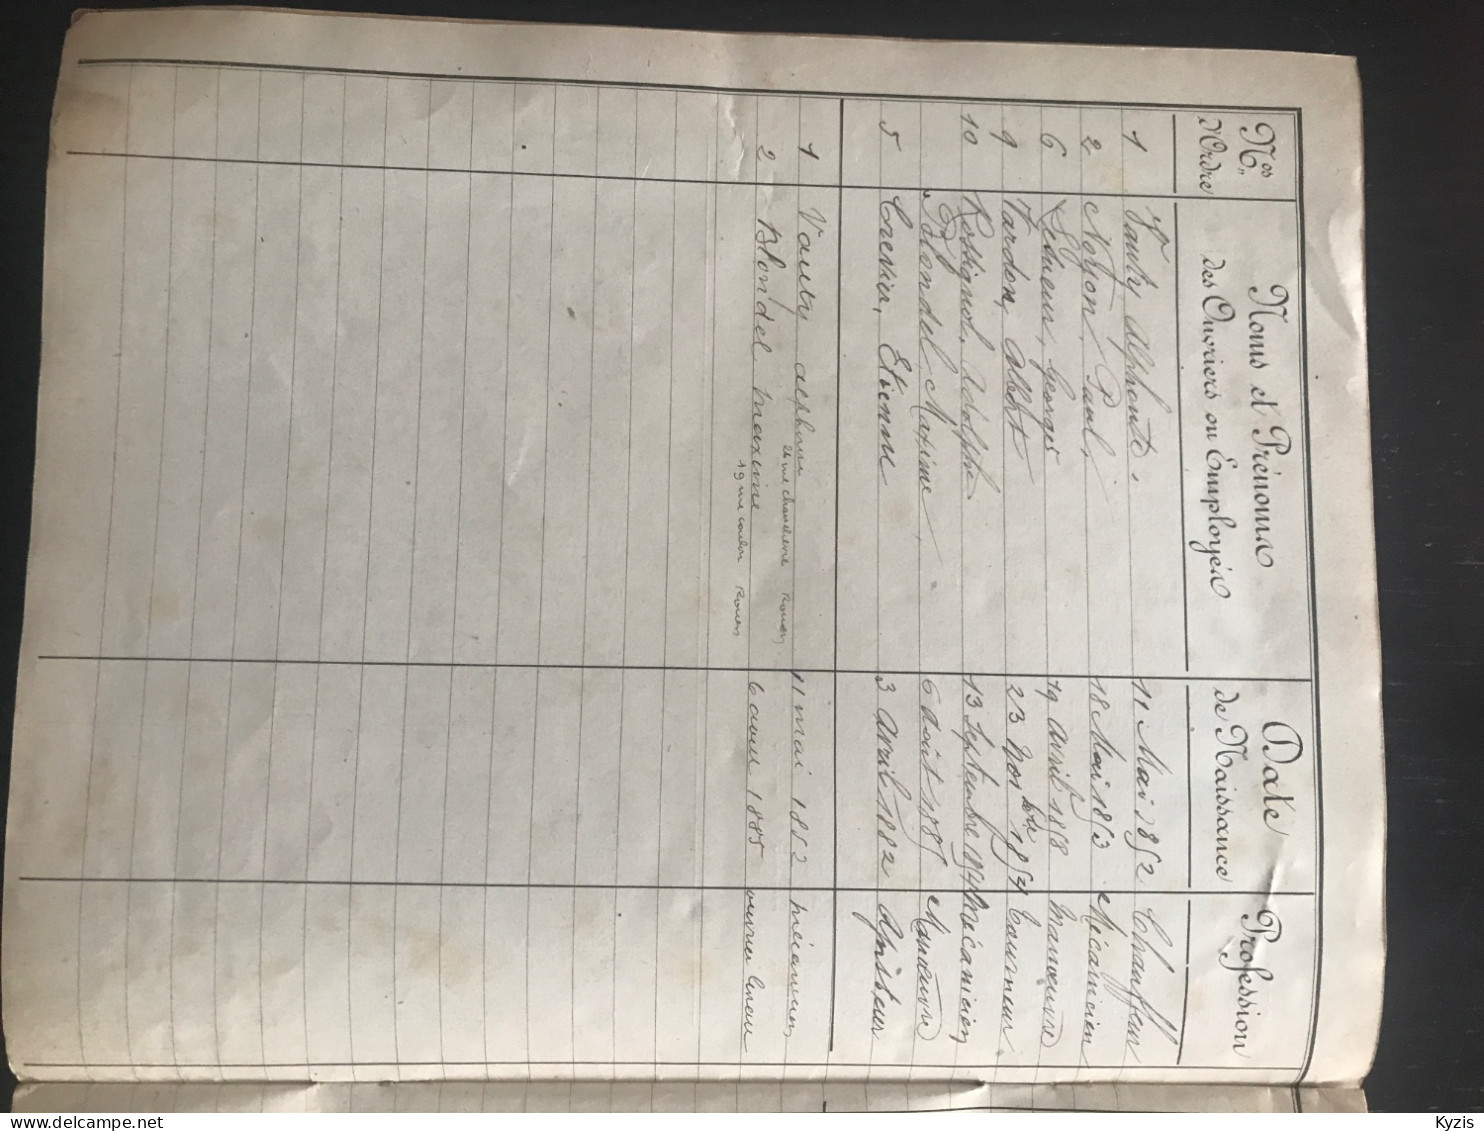 Nos d'Ordre
Noms et Prénoms des Ouvriers ou Employés
Date de Naissance
Profession
1 Vautry Alphonse. 11 Mai 1852 Chauffeur
2 Noyon, Paul, 18 Mai 1853 Mécanicien
6 Lesueur, Georges 19 Avril 1858 Manœuvre
9 Tardon, Albert 23 Novbre 1854 Tourneur
10 Rossignol, Adolphe 13 Septembre Mécanicien
Blondel Maxime, 6 Août 1885 Manœuvre
5 Etienne 3 Avril 1882 Ajusteur
1 Vautry alphonse 11 mai 1852 mécanicien
Rouen
2 Blondel maxime 6 aout 1885 ouvrier
19 rue Rouen
Kyzis